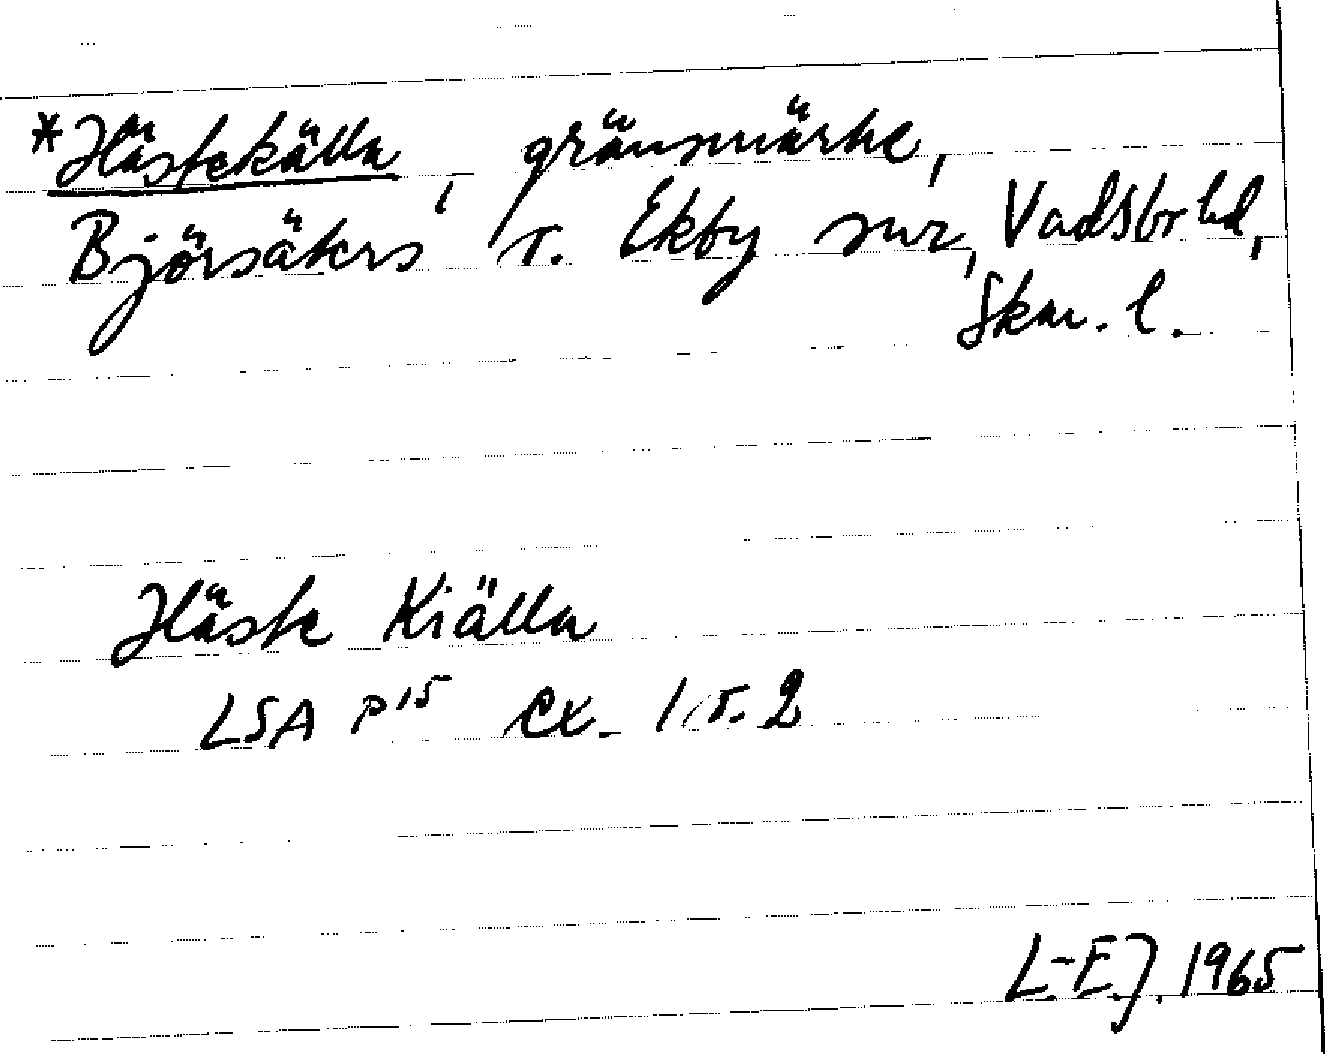 *Hästekälla, gränsmärke,
Björsäters o. Ekby snr, Vadsbr hd,
Skar. l.
Häste Kiälla
LSA P 15 ex. 1 o. 2
L.-E.J. 1965